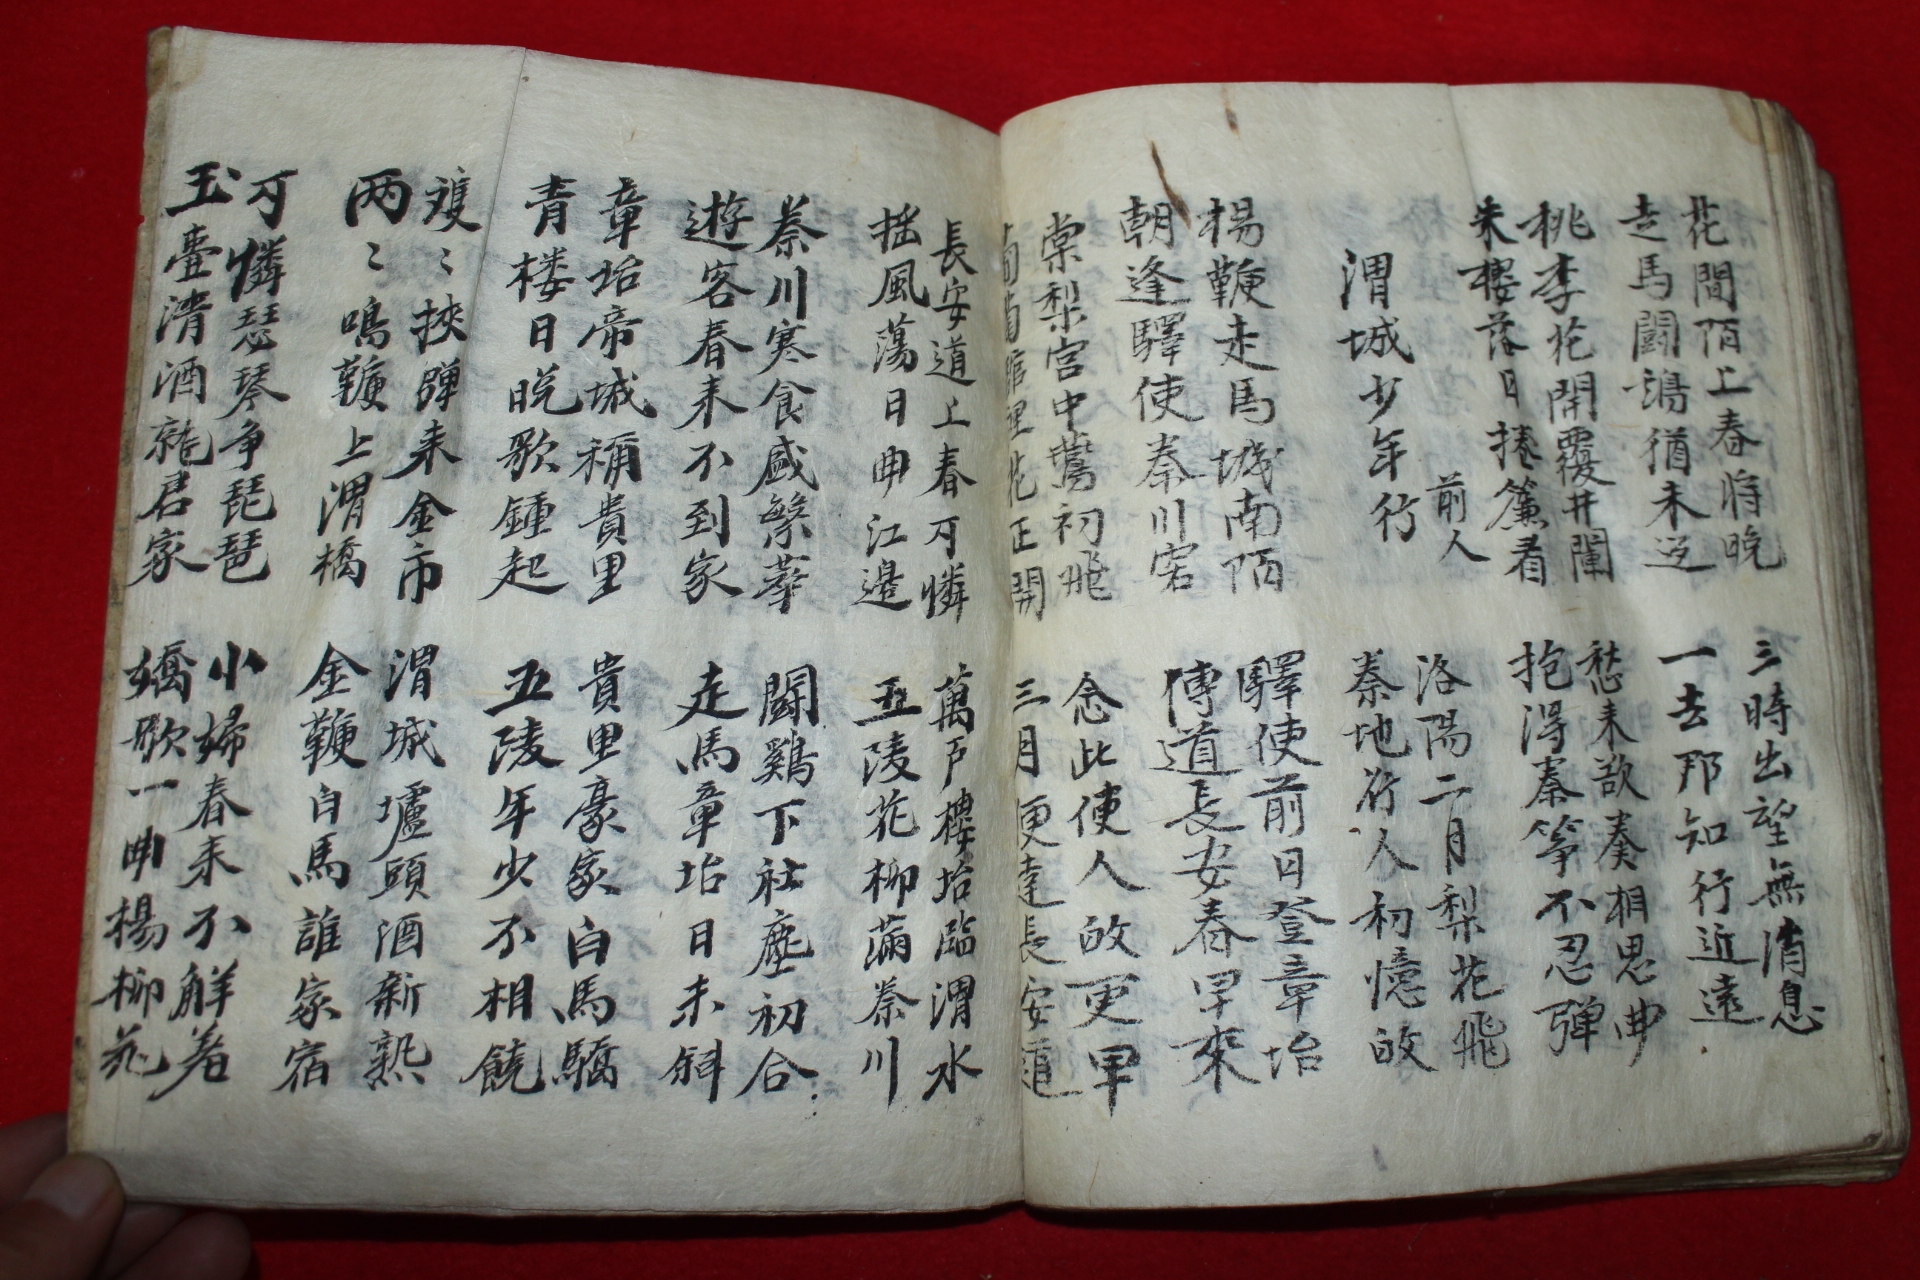 花間陌上春將晩 三時出望無消息
走馬闘鷄猶未返 一去那知行近遠
桃李花開覆井闌 愁来欲奏相思曲
朱樓落日捲簾看 抱得秦箏不忍彈
前人
渭城少年行
洛陽二月梨花飛
秦地行人初憶故
楊鞭走馬城南陌 驛使前日登章坮
朝逢驛使秦川客 傳道長安春早來
棠梨宮中鷰初飛 念此使人故更早
館裡花正開 三月便達長安道
長安道上春可憐 萬戶樓坮臨渭水
揺風蕩日曲江邉 五陵花柳滿秦川
秦川寒食盛繁華 闘鷄下社塵初合
遊客春来不到家 走馬章坮日未斜
章坮帝城稱貴里 貴里豪家白馬驕
青楼日晩歌鍾起 五陵年少不相饒
雙〻挾彈来金市 渭城壚頭酒新熟
两〻鳴鞭上渭橋 金鞭白馬誰家宿
可憐瑟琴争琵琶 小婦春来不解着
玉臺清酒就君家 嬌歌一曲楊柳花